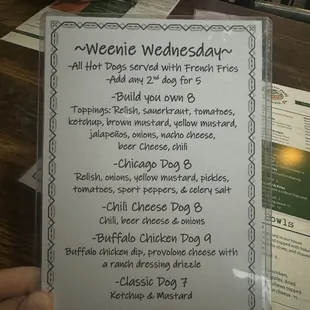 ~Weenie Wednesday~
-All Hot Dogs served with French Fries
-Add any 2nd dog for 5
-Build you own 8
Toppings: Relish, sauerkraut, tomatoes,
ketchup, brown mustard, yellow mustard,
jalapeños, onions, nacho cheese,
beer Cheese, chili
-Chicago Dog 8
Relish, onions, yellow mustard, pickles,
tomatoes, sport peppers, & celery salt
-Chili Cheese Dog 8
Chili, beer cheese & onions
-Buffalo Chicken Dog 9
Buffalo chicken dip, provolone cheese with
a ranch dressing drizzle
-Classic Dog 7
Ketchup & Mustard